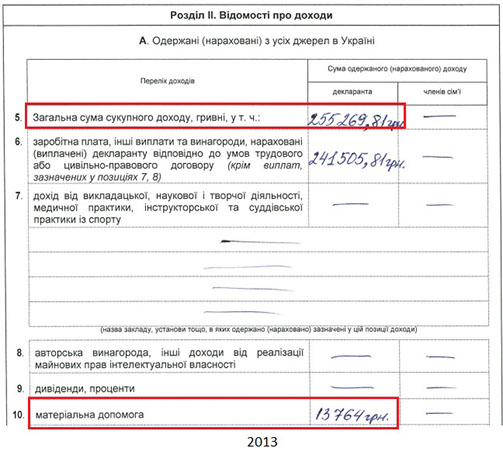 Розділ II. Відомості про доходи
А. Одержані (нараховані) з усіх джерел в Україні
Перелік доходів
Сума одержаного (нарахованого) доходу
декларанта
членів сім'ї
5. Загальна сума сукупного доходу, гривні, у т. ч.: 255269,81грн. —
6. заробітна плата, інші виплати та винагороди, нараховані
(виплачені) декларанту відповідно до умов трудового
або цивільно-правового договору (крім виплат,
зазначених у позиціях 7, 8)
241505,81грн. —
7. дохід від викладацької, наукової і творчої діяльності,
медичної практики, інструкторської та суддівської
практики із спорту
— —
(назва закладу, установи тощо, в яких одержано (нараховано) зазначені у цій позиції доходи)
8. авторська винагорода, інші доходи від реалізації
майнових прав інтелектуальної власності
— —
9. дивіденди, проценти — —
10. матеріальна допомога 13764грн. —
2013